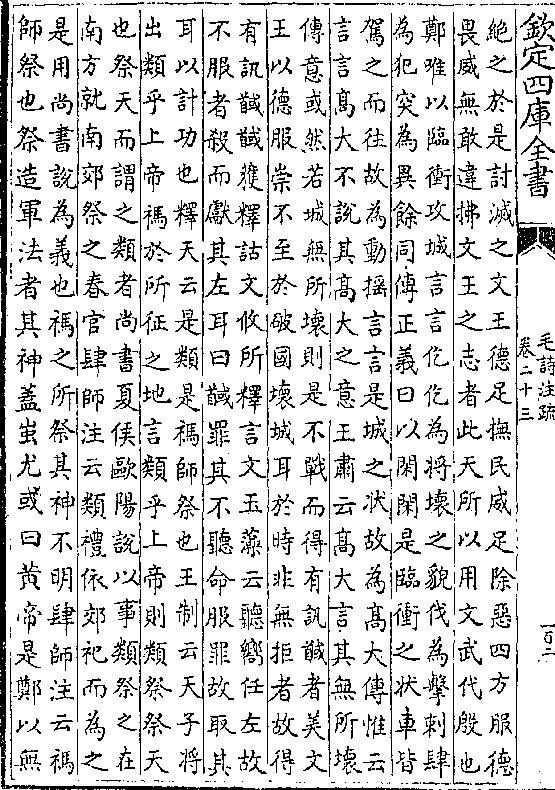 欽定四庫全書
毛詩注疏
卷二十三
絶之於是計滅之文王德足撫民威足除惡四方服德
畏威無敢違拂文王之志者此天所以用文武代殷也
鄭唯以臨衝攻城言言仡仡為將壞之貌伐為擊刺肆
為犯突為異餘同傳正義曰以閑閑是臨衝之状車皆
駕之而往故為動摇言言是城之状故為髙大傳惟云
言言髙大不說其髙大之意王肅云髙大言其無所壊
傳意或然若城無所壊則是不戰而得有訊馘者美文
王以德服崇不至於破國壊城耳於時非無拒者故得
有訊馘馘獲釋詁文攸所釋言文玉藻云聽嚮任左故
不服者殺而獻其左耳曰馘罪其不聽命服罪故取其
耳以計功也釋天云是類是禡師祭也王制云天子將
出類乎上帝禡於所征之地言類乎上帝則類祭祭天
也祭天而謂之類者尚書夏侯歐陽說以事類祭之在
南方就南郊祭之春官肆師注云類禮依郊祀而為之
是用尚書說為義也禡之所祭其神不明肆師注云禡
師祭也祭造軍法者其神蓋蚩尤或曰黄帝是鄭以無